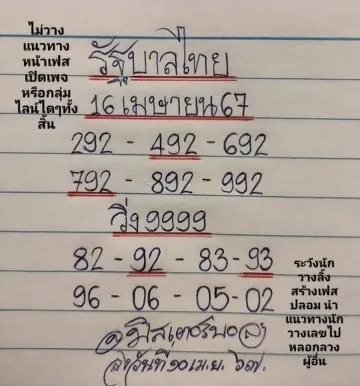 ไม่วาง
แนวทาง
หน้าเฟส
เปิดเพจ
หรือกลุ่ม
ไลน์ใดๆทั้ง
สิ้น
รัฐบาลไทย
16 เมษายน 67
292 - 492 - 692
792 - 892 - 992
วิ่ง 9999
82 - 92 - 83 - 93
96 - 06 - 05 - 02
ระวังนัก
วางลิ้ง
สร้างเฟส
ปลอม นำ
แนวทางนัก
วางเลขไป
หลอกลวง
ผู้อื่น
วันที่ ๑๐ เม.ย. ๖๗.